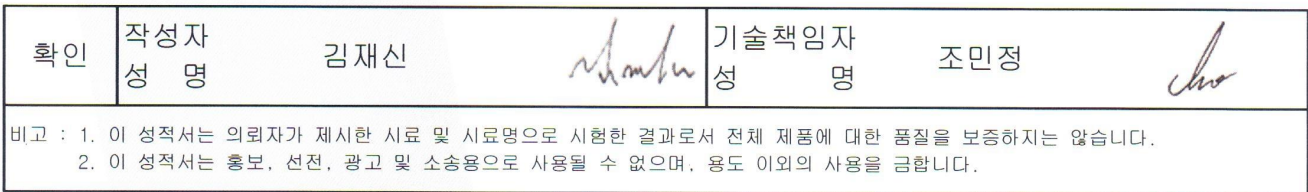 확인 작성자 성 명 김재신 기술책임자 성 명 조민정
비고 : 1. 이 성적서는 의뢰자가 제시한 시료 및 시료명으로 시험한 결과로서 전체 제품에 대한 품질을 보증하지는 않습니다.
2. 이 성적서는 홍보, 선전, 광고 및 소송용으로 사용될 수 없으며, 용도 이외의 사용을 금합니다.